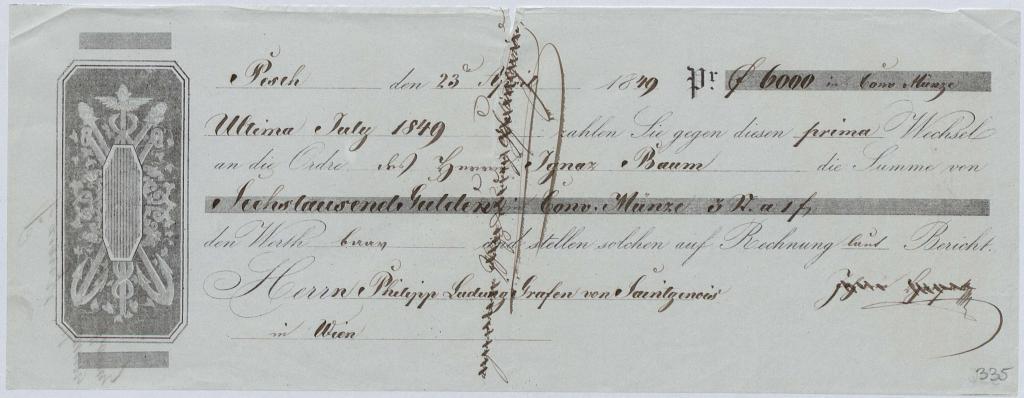 Pesth den 23 April 1849 Pr f 6000 in Conv. Münze
Ultima July 1849 zahlen Sie gegen diesen prima Wechsel
an die Ordre des Herrn Ignaz Baum die Summe von
Sechstausend Gulden Conv. Münze 3 St. a 1 f
den Werth baar und stellen solchen auf Rechnung laut Bericht.
Herrn Philipp Ludwig Grafen von Saintgenois
in Wien
335